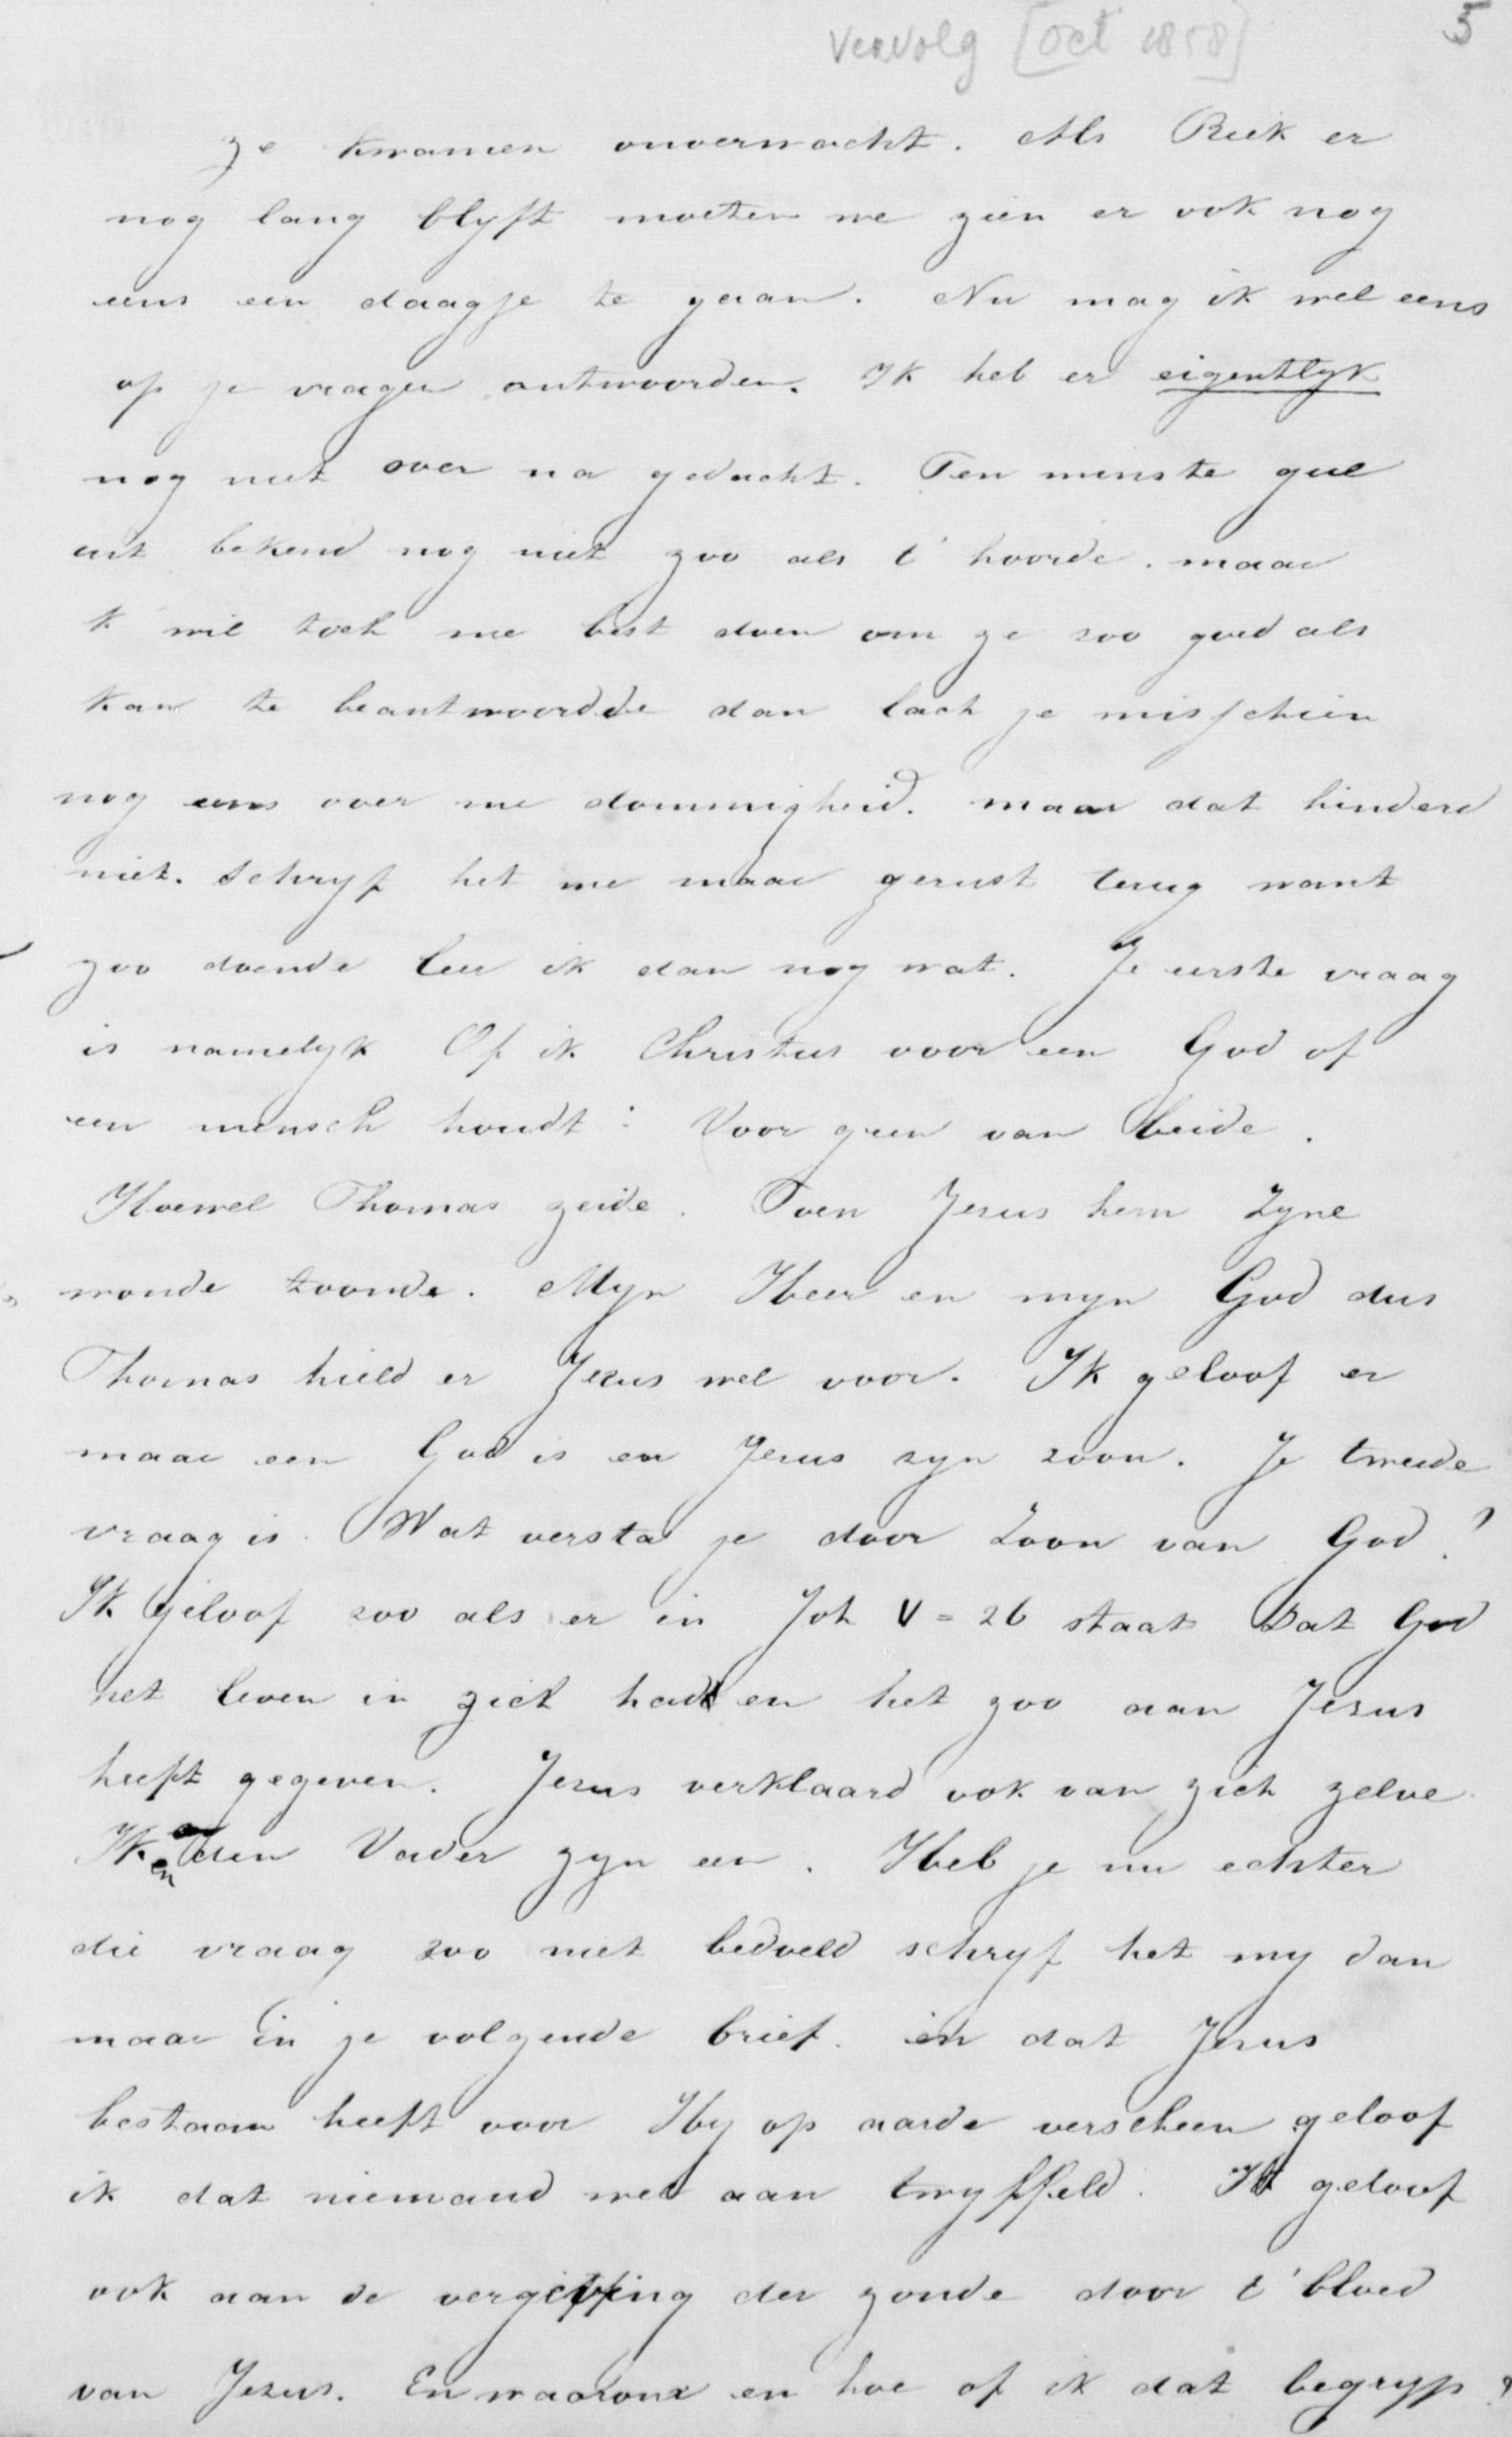 Vervolg [Oct 1858] 5
ze kwamen onverwacht. Als Riek er
nog lang blyft moeten we zien er ook nog
eens een daagje te gaan. Nu mag ik wel eens
op je vragen antwoorden. Ik heb er eigentlyk
nog niet over na gedacht. Ten minste gul
uit bekend nog niet zoo als t' hoorde. maar
k wil toch me best doen om ze zoo goed als
kan te beantwoordde dan lach je misschien
nog eens over me dommigheid. maar dat hinderd
niet. Schryf het me maar gerust terug want
zoo doende leer ik dan nog wat. Je eerste vraag
is namelyk Of ik Christus voor een God of
een mensch houdt: Voor geen van beide.
Hoewel Thomas zeide. Toen Jesus hem Zyne
wonde toonde. Myn Heer en myn God dus
Thomas hield er Jezus wel voor. Ik geloof er
maar een God is en Jesus zyn zoon. Je tweede
vraag is. Wat versta je door Zoon van God?
Ik geloof zoo als er in Joh V = 26 staat Dat God
het leven in zich hadt en het zoo aan Jezus
heeft gegeven. Jezus verklaard ook van zich zelve
Ik en den Vader zyn een. Heb je nu echter
die vraag zoo niet bedoeld schryf het my dan
maar in je volgende brief. en dat Jesus
bestaan heeft voor Hy op aarde verscheen geloof
ik dat niemand wel aan twyffeld. Ik geloof
ook aan de vergeving der zonde door t' bloed
van Jezus. En waarom en hoe of ik dat begryp?